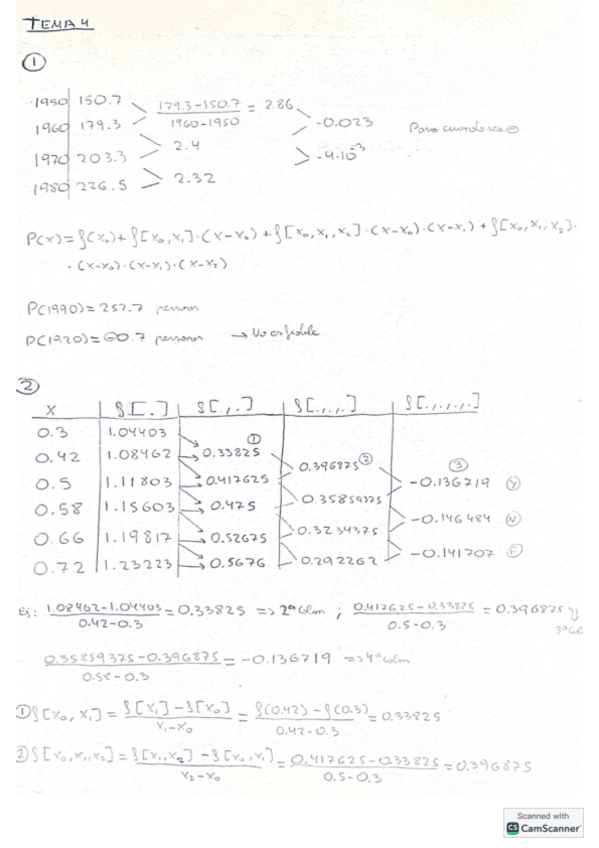 TEMA 4
①
1950 150.7 (179.3-150.7)/(1960-1950) = 2.86
1960 179.3 -0.023
2.4
1970 203.3 -4·10^-3
1980 226.5 2.32
P(x) = f(x₀) + f[x₀,x₁]·(x-x₀) + f[x₀,x₁,x₂]·(x-x₀)·(x-x₁) + f[x₀,x₁,x₂]·
·(x-x₀)·(x-x₁)·(x-x₂)
P(1990) = 257.7 personas
P(1920) = 60.7 personas → No es fiable
②
x f[.] f[.,.] f[.,.,.] f[.,.,.,.]
0.3 1.04403 ①
0.42 1.08462 0.33825 0.396875 ② ③
0.5 1.11803 0.417625 -0.136719 Y
0.35859375
0.58 1.15603 0.475 -0.146484 N
0.3234375
0.66 1.19817 0.52675 -0.141707 F
0.72 1.23223 0.5676 0.292262
Ej: (1.08462-1.04403)/(0.42-0.3) = 0.33825 => 2ª Colm ; (0.417625-0.33825)/(0.5-0.3) = 0.396875 y
3ª Col
(0.35859375-0.396875)/(0.58-0.3) = -0.136719 => 4ª Colm
① f[x₀,x₁] = (f[x₁]-f[x₀])/(x₁-x₀) = (f(0.42)-f(0.3))/(0.42-0.3) = 0.33825
② f[x₀,x₁,x₂] = (f[x₁,x₂]-f[x₀,x₁])/(x₂-x₀) = (0.417625-0.33825)/(0.5-0.3) = 0.396875
Scanned with
CS CamScanner